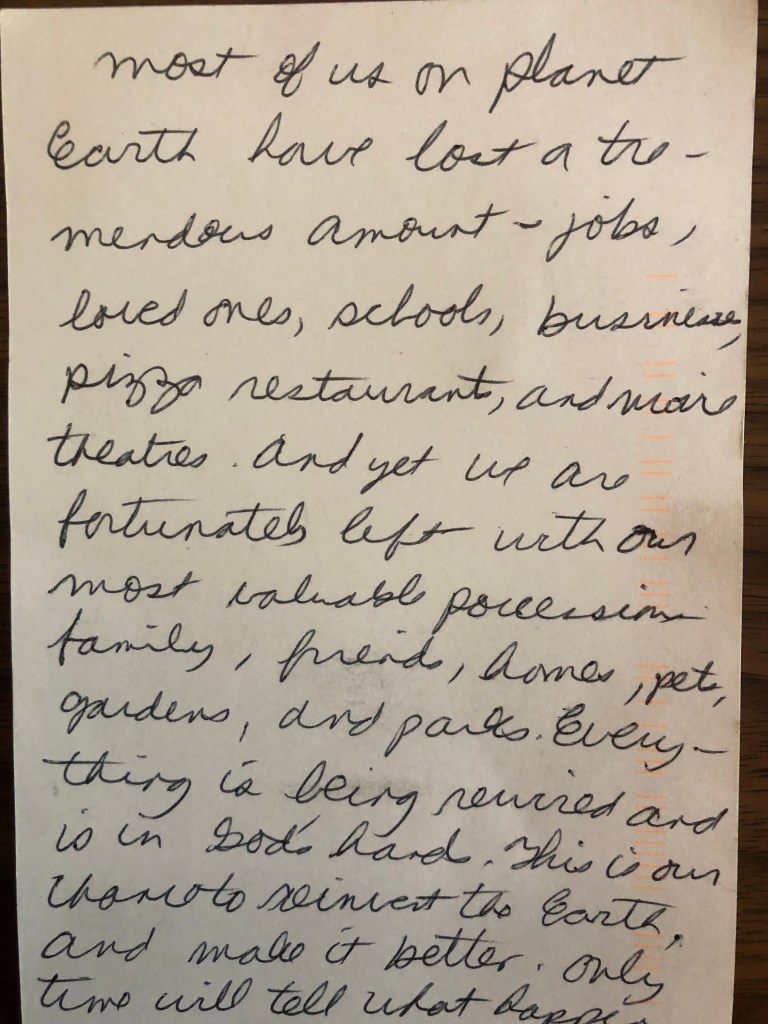 most of us on planet
Earth have lost a tre-
mendous amount - jobs,
loved ones, schools, businesses,
pizza restaurants, and movie
theatres. And yet we are
fortunately left with our
most valuable possessions
family, friends, homes, pets,
gardens, and parks. Every-
thing is being rewired and
is in God's hands. This is our
chance to reinvent the Earth,
and make it better. Only
time will tell what